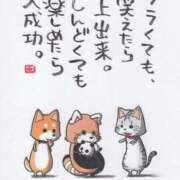 ラくても、
笑えたら
上出来。
しんどくても
楽しめたら
大成功。